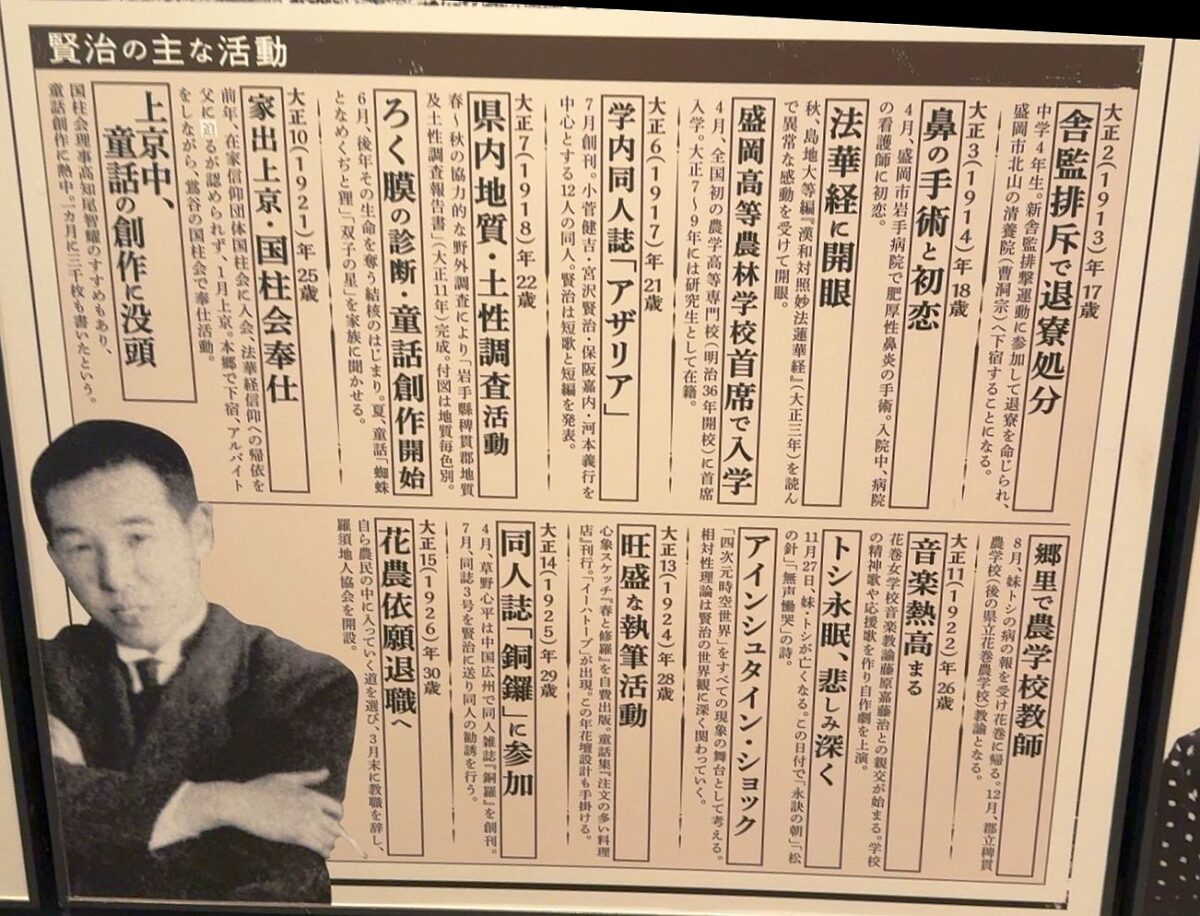 賢治の主な活動
大正2(1913)年 17歳
舎監排斥で退寮処分
中学4年生。新舎監排撃運動に参加して退寮を命じられ、
盛岡市北山の清養院(曹洞宗)へ下宿することになる。
大正3(1914)年 18歳
鼻の手術と初恋
4月、盛岡市岩手病院で肥厚性鼻炎の手術。入院中、病院
の看護師に初恋。
法華経に開眼
秋、島地大等編『漢和対照妙法蓮華経』(大正三年)を読ん
で異常な感動を受けて開眼。
盛岡高等農林学校首席で入学
4月、全国初の農学高等専門校(明治36年開校)に首席
入学。大正7〜9年には研究生として在籍。
大正6(1917)年 21歳
学内同人誌「アザリア」
7月創刊。小菅健吉・宮沢賢治・保阪嘉内・河本義行を
中心とする12人の同人。賢治は短歌と短編を発表。
大正7(1918)年 22歳
県内地質・土性調査活動
春〜秋の協力的な野外調査により「岩手縣稗貫郡地質
及土性調査報告書」(大正11年)完成。付図は地質毎色別。
ろく膜の診断・童話創作開始
6月、後年その生命を奪う結核のはじまり。夏、童話「蜘蛛
となめくぢと狸」「双子の星」を家族に聞かせる。
大正10(1921)年 25歳
家出上京・国柱会奉仕
前年、在家信仰団体国柱会に入会、法華経信仰への帰依を
父に迫るが認められず、1月上京。本郷で下宿、アルバイト
をしながら、鶯谷の国柱会で奉仕活動。
上京中、
童話の創作に没頭
国柱会理事高知尾智耀のすすめもあり、
童話創作に熱中。一カ月に三千枚も書いたという。
郷里で農学校教師
8月、妹トシの病の報を受け花巻に帰る。12月、郡立稗貫
農学校(後の県立花巻農学校)教諭となる。
大正11(1922)年 26歳
音楽熱高まる
花巻女学校音楽教諭藤原嘉藤治との親交が始まる。学校
の精神歌や応援歌を作り自作劇を上演。
トシ永眠、悲しみ深く
11月27日、妹・トシが亡くなる。この日付で「永訣の朝」「松
の針」「無声慟哭」の詩。
アインシュタイン・ショック
「四次元時空世界」をすべての現象の舞台として考える。
相対性理論は賢治の世界観に深く関わっていく。
大正13(1924)年 28歳
旺盛な執筆活動
心象スケッチ『春と修羅』を自費出版。童話集『注文の多い料理
店』刊行。「イーハトーブ」が出現。この年花壇設計も手掛ける。
大正14(1925)年 29歳
同人誌「銅鑼」に参加
4月、草野心平は中国広州で同人雑誌『銅鑼』を創刊。
7月、同誌3号を賢治に送り同人の勧誘を行う。
大正15(1926)年 30歳
花農依願退職へ
自ら農民の中に入っていく道を選び、3月末に教職を辞し、
羅須地人協会を開設。